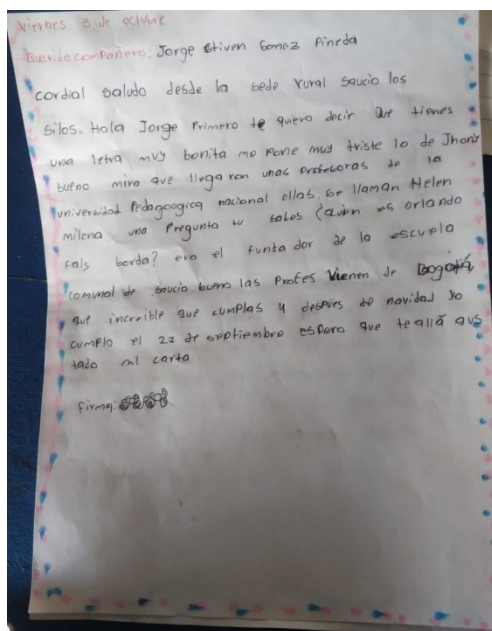 Viernes 8 de octubre
Querido compañero. Jorge Stiven Gomez Pineda
cordial saludo desde la sede rural saucio los
silos. Hola Jorge Primero te quiero decir que tienes
una letra muy bonita me pone muy triste lo de Jhony
bueno mira que llegaron unas profesoras de la
universidad Pedagoogica nacional ellas se llaman Helen
milena una Pregunta tu sabes ¿quien es orlando
fals borda? era el fundador de la escuela
comunal de saucio bueno las Profes vienen de Bogotá
que increible que cumplas 4 despues de navidad yo
cumplo el 27 de septiembre espero que te allá gus
tado mi carta
firma: